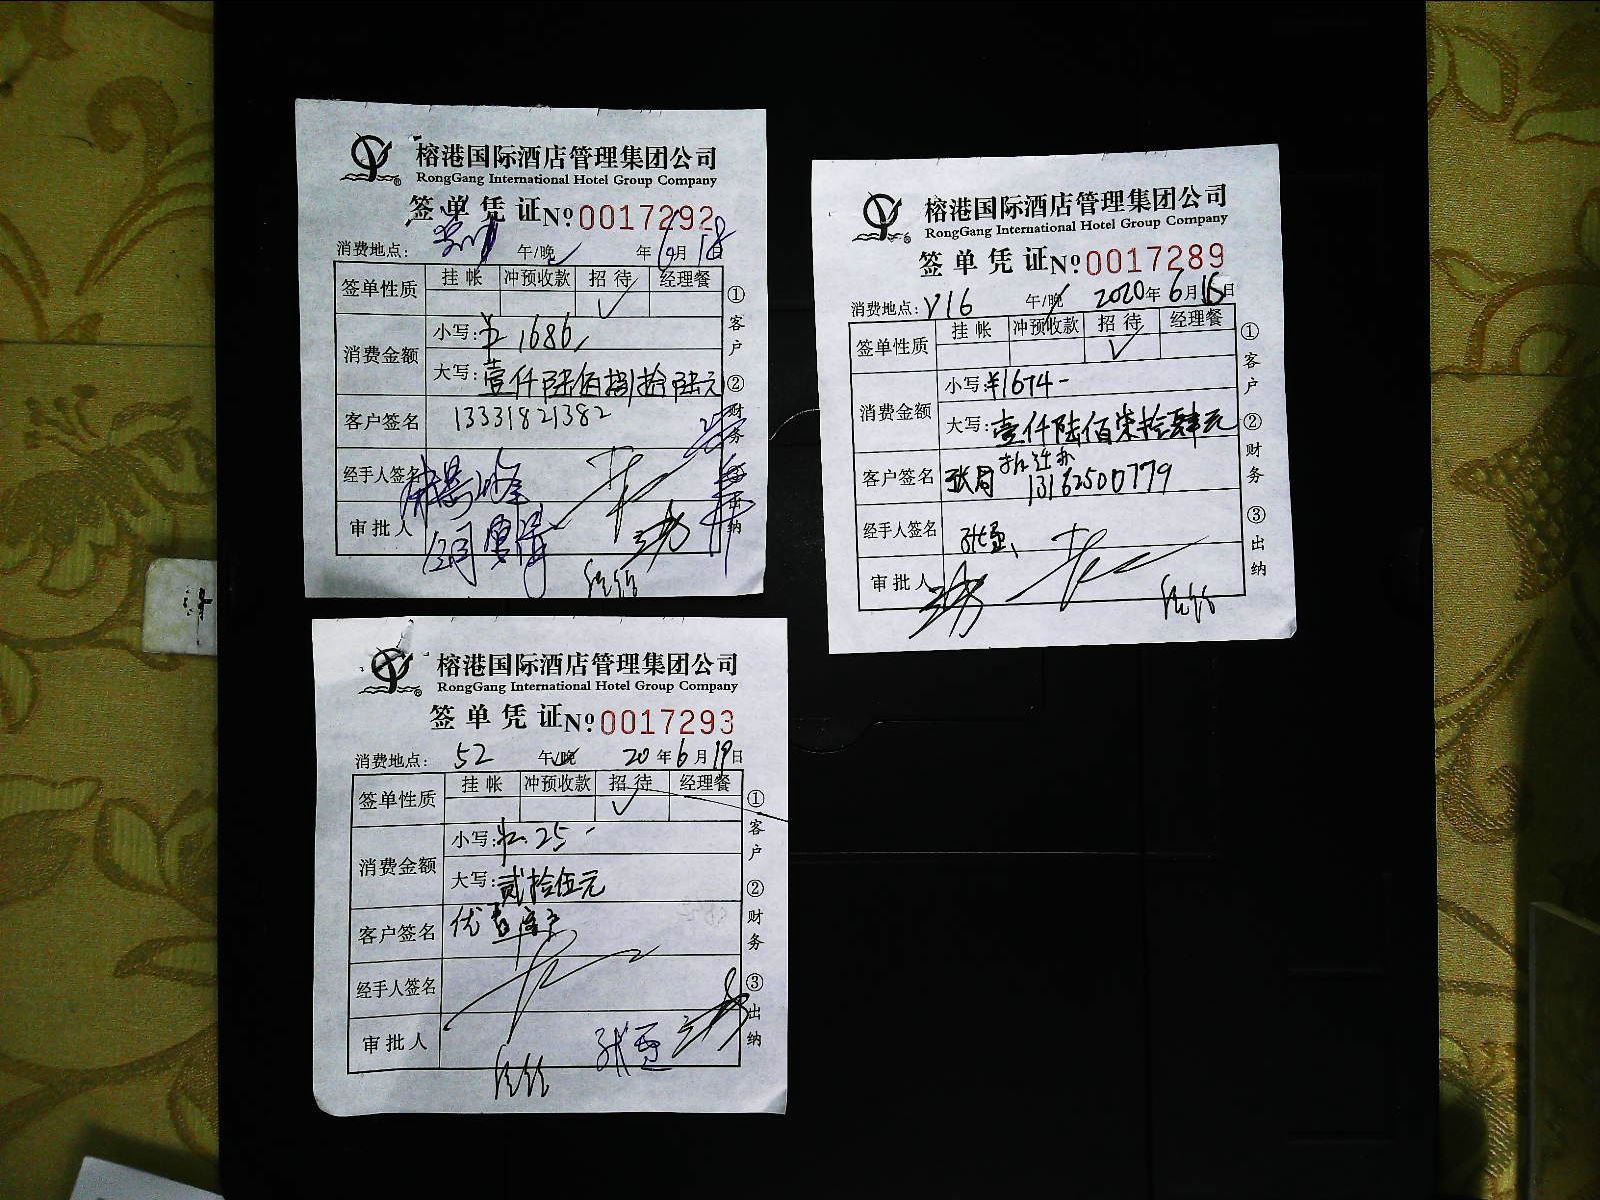 榕港国际酒店管理集团公司
RongGang International Hotel Group Company
签单凭证 Nº 0017292
消费地点: 午/晚 年 6月 18日
签单性质 挂帐 冲预收款 招待 经理餐
消费金额
小写: 1686
大写: 壹仟陆佰捌拾陆元
客户签名 13331821382
经手人签名
审批人
①客户 ②财务 ③出纳
榕港国际酒店管理集团公司
RongGang International Hotel Group Company
签单凭证 Nº 0017289
消费地点: V16 午/晚 2020年 6月 日
签单性质 挂帐 冲预收款 招待 经理餐
消费金额
小写: ¥1674-
大写: 壹仟陆佰柒拾肆元
客户签名 13162500779
经手人签名
审批人
①客户 ②财务 ③出纳
榕港国际酒店管理集团公司
RongGang International Hotel Group Company
签单凭证 Nº 0017293
消费地点: 52 午/晚 20年 6月 19日
签单性质 挂帐 冲预收款 招待 经理餐
消费金额
小写: 25-
大写: 贰拾伍元
客户签名
经手人签名
审批人
①客户 ②财务 ③出纳